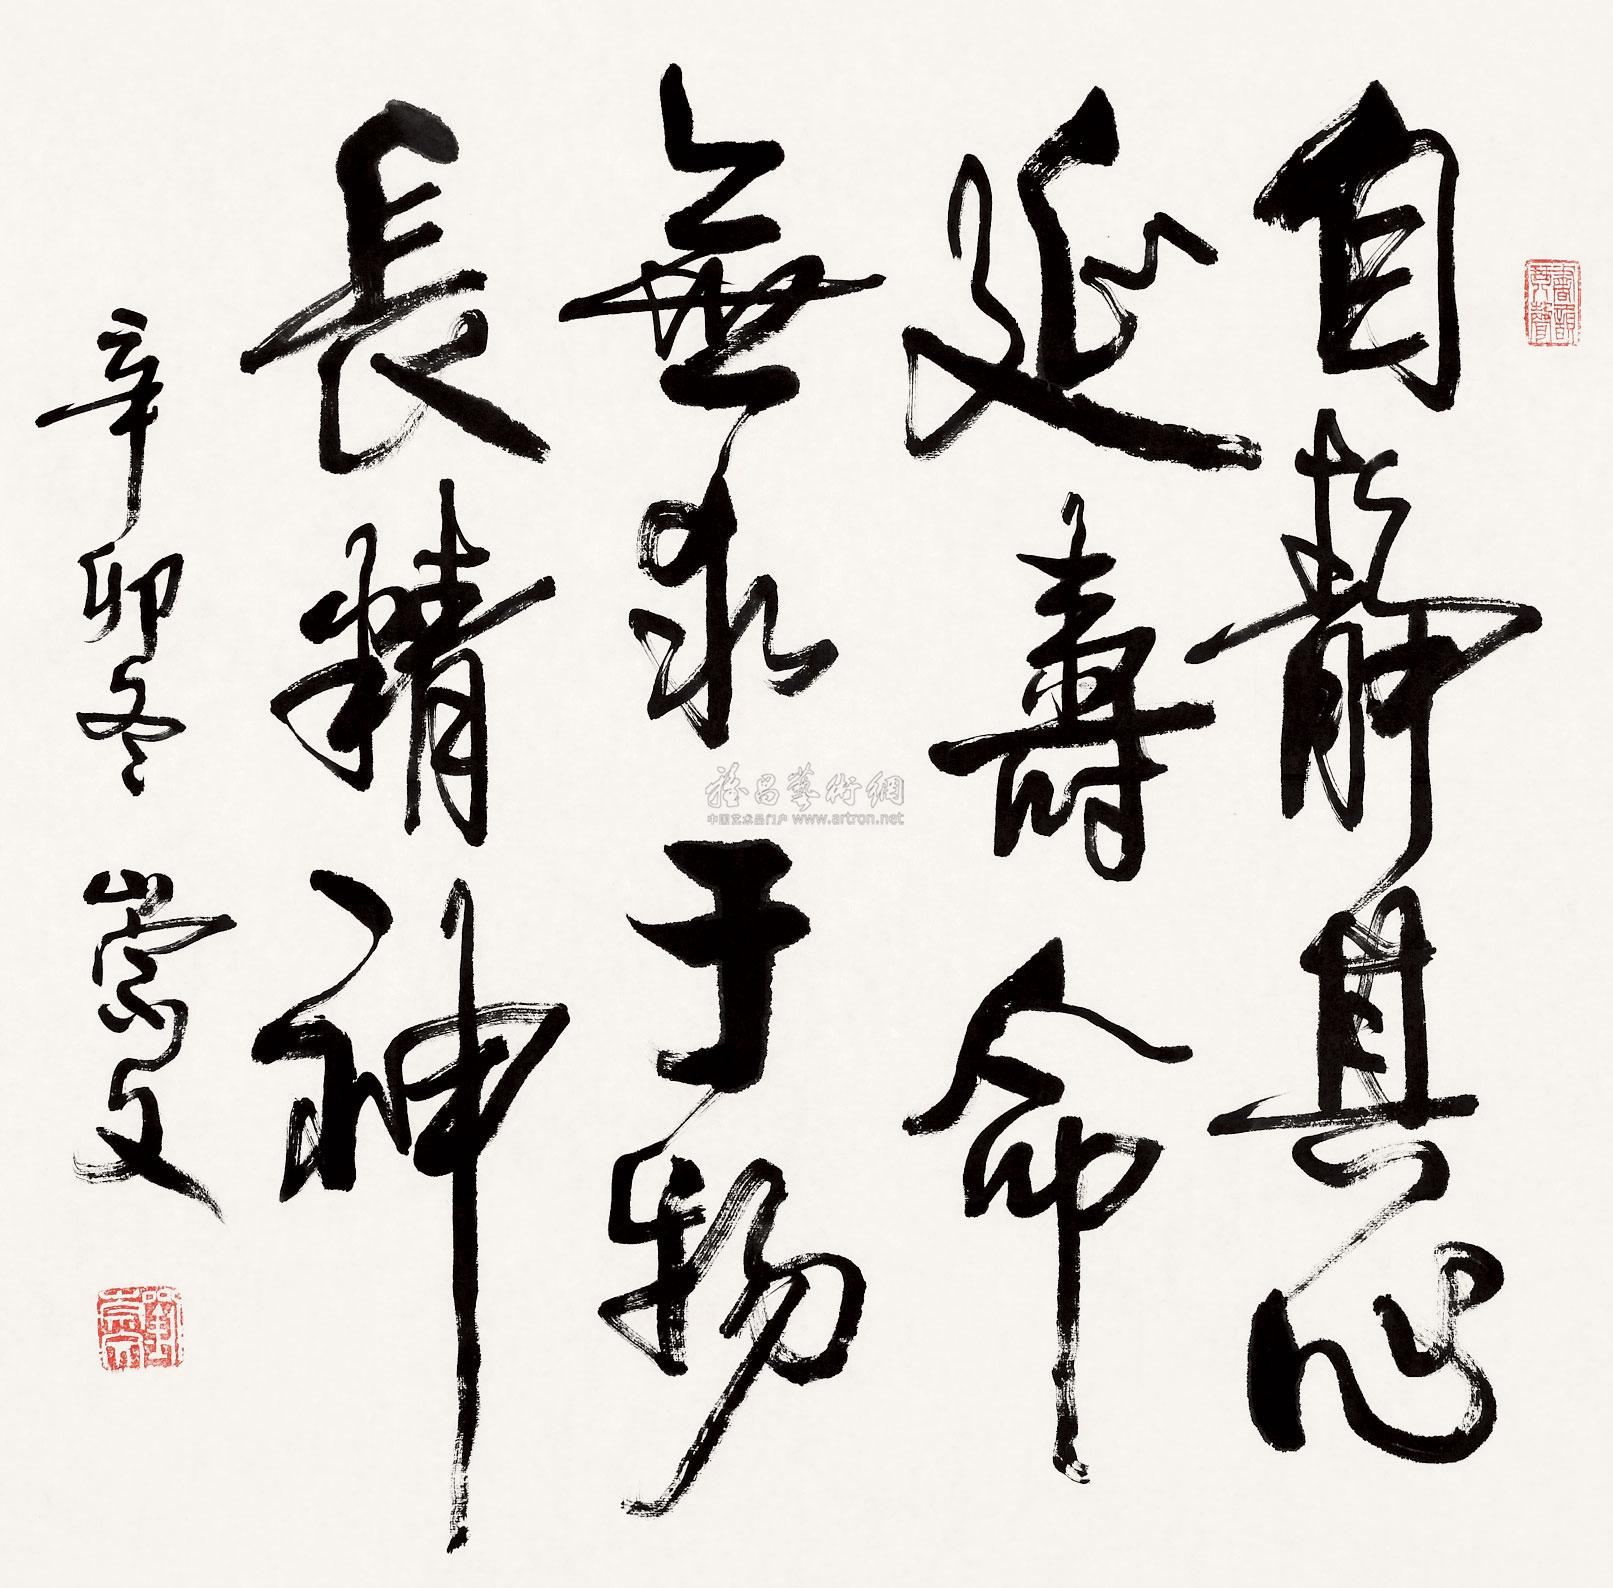 自靜其心
延壽命
無求于物
長精神
辛卯冬 崇文
雅昌藝術網
中国艺术品门户 www.artron.net